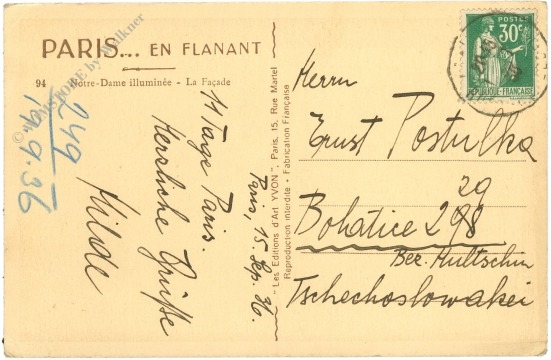 PARIS... EN FLANANT
94 Notre-Dame illuminée - La Façade
249
19.9.36
14 Tage Paris.
Herzliche Grüße
Hilde
Paris, 15. Sep. 36.
"Les Editions d'Art YVON", Paris, 15, Rue Martel
Reproduction interdite - Fabrication Française
POSTES
30c
REPUBLIQUE FRANÇAISE
Herrn
Ernst Postulka
29
Bohatice 298
Bez. Hultschin
Tschechoslowakei